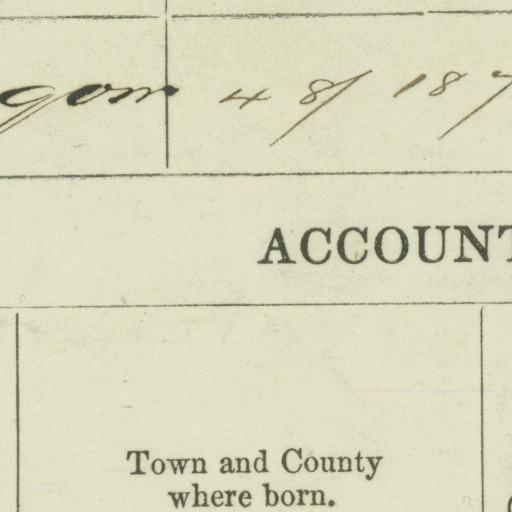 48/187
ACCOUNT
Town and County
where born.